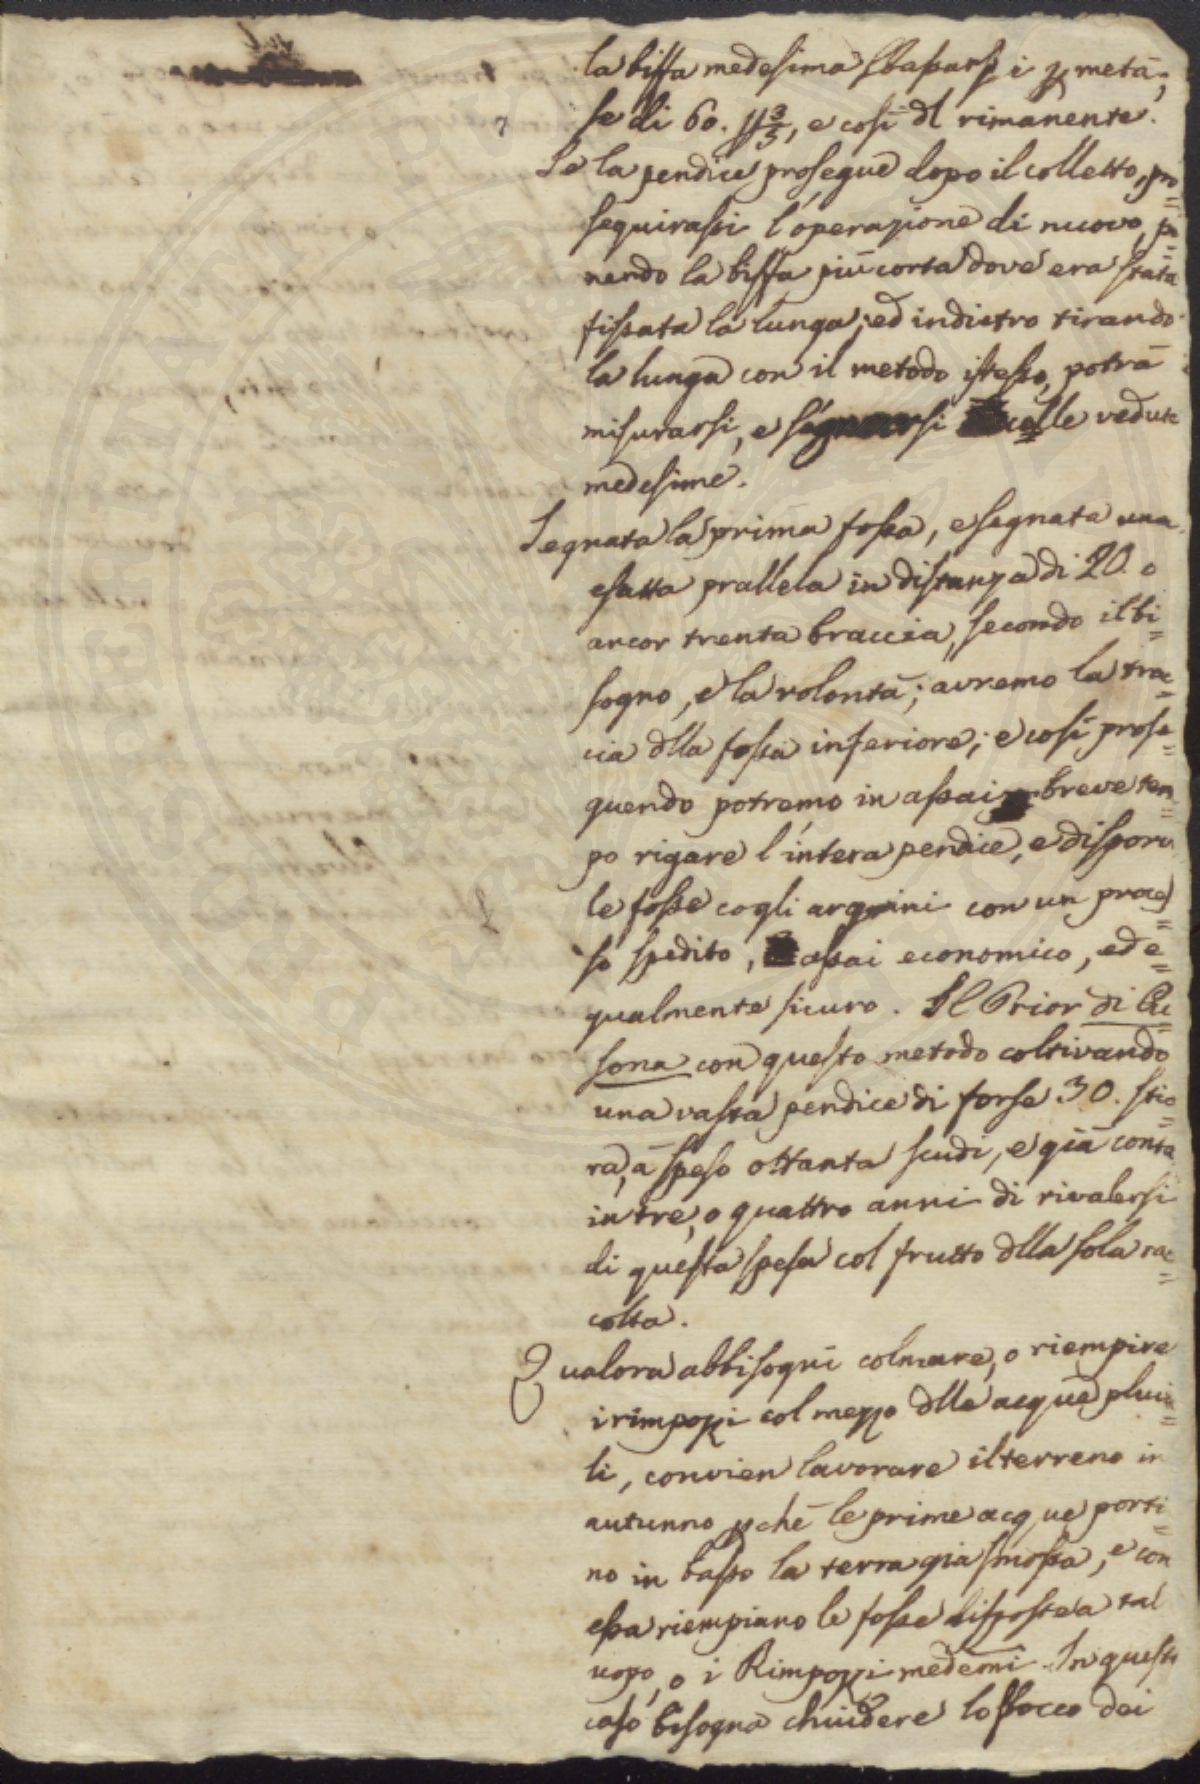 la biffa medesima sbassarsi p metà;
se di 60. pp 3/5, e così dl rimanente.
Se la pendice prosegue dopo il colletto, pro=
sequirassi l'operazione di nuovo, po=
nendo la biffa più corta dove era stata
fissata la lunga; ed indietro tirando
la lunga con il metodo istesso, potrà
misurarsi, e segnarsi colle vedute
medesime.
Segnata la prima fossa, e segnata una
esatta prallela in distanza di 20. o
ancor trenta braccia, secondo il bi=
sogno, e la volontà; avremo la trac=
cia dlla fossa inferiore; e così prose=
guendo potremo in assai breve tem=
po rigare l'intera pendice, e disporre
le fosse cogli argini con un proces=
so spedito, assai economico, ed e=
qualmente sicuro. Il Prior di Cu=
sona con questo metodo coltivando
una vasta pendice di forse 30. stio=
ra, à speso ottanta scudi, e già conta
in tre, o quattro anni di rivalersi
di questa spesa col frutto dlla sola rac=
colta.
Qualora abbisogni colmare, o riempire
i rimpozzi col mezzo dlle acque pluvia=
li, convien lavorare il terreno in
autunno pchè le prime acque porti=
no in basso la terra già smossa, e con
essa riempiano le fosse disposte a tal
uopo, o i Rimpozzi medemi. In questo
caso bisogna chiudere lo sbocco dei